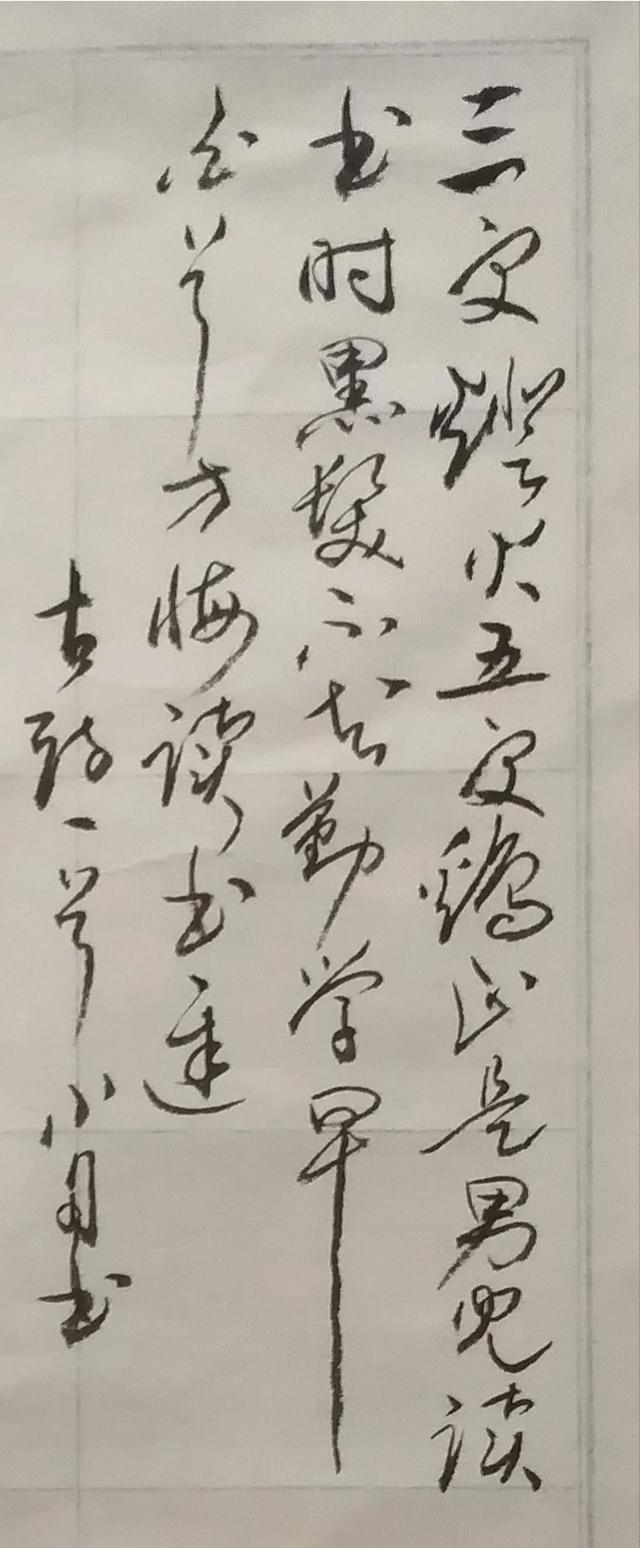 三更燈火五更鷄正是男兒读
书时黑髮不知勤学早
白首方悔读书遲
古詩一首小月书